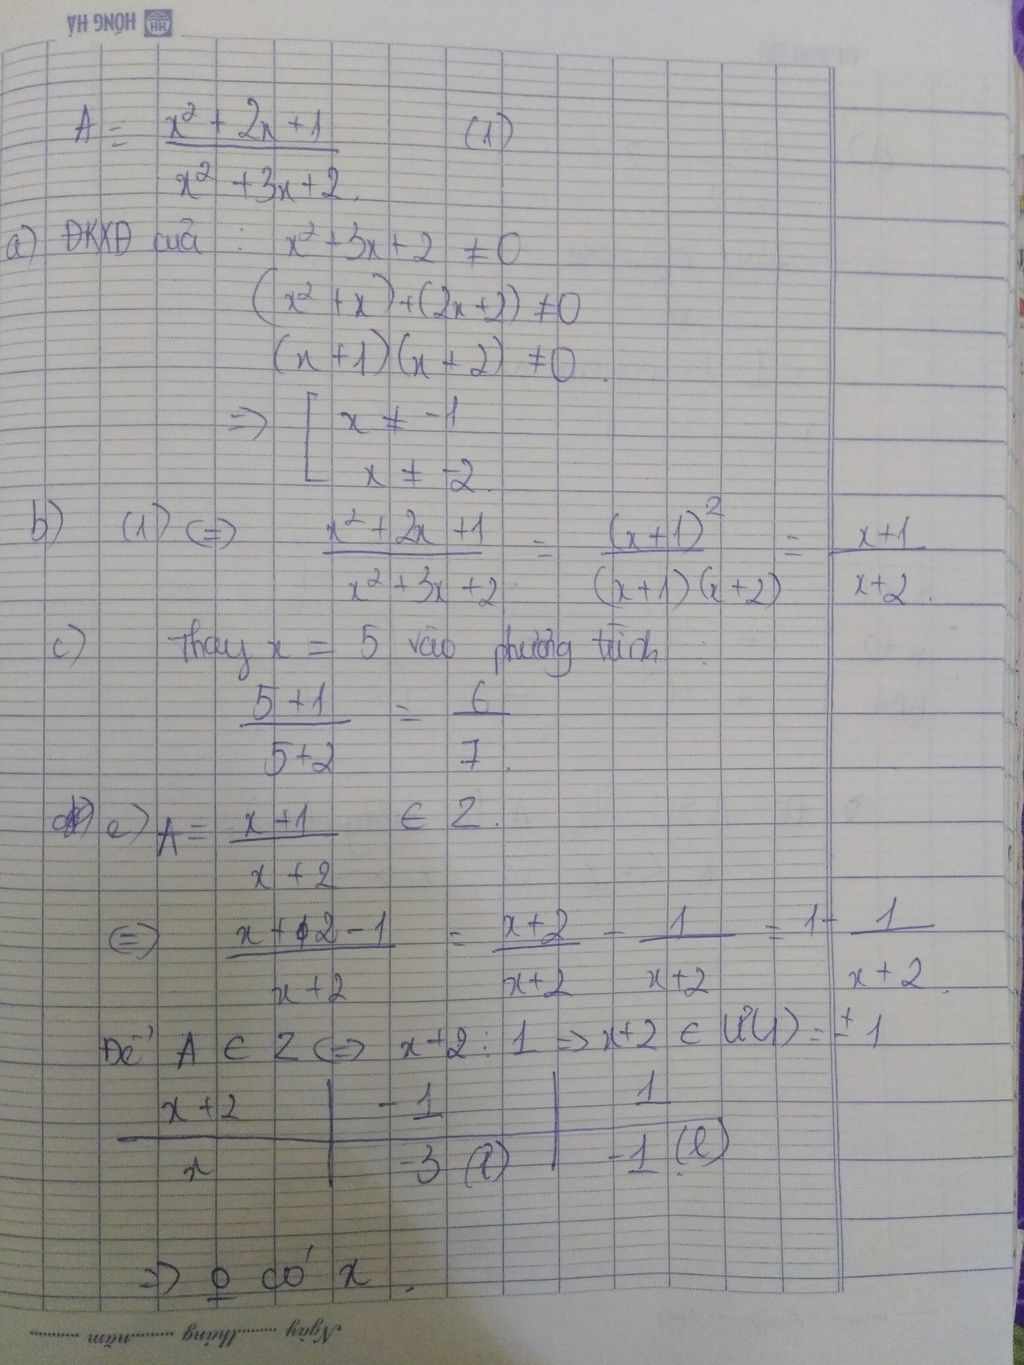 HH HỒNG HÀ
A = \frac{x^2 + 2x + 1}{x^2 + 3x + 2} (1)
a) ĐKXĐ của : x^2 + 3x + 2 ≠ 0
(x^2 + x) + (2x + 2) ≠ 0
(x + 1)(x + 2) ≠ 0
=> [ x ≠ -1
x ≠ -2
b) (1) <=> \frac{x^2 + 2x + 1}{x^2 + 3x + 2} = \frac{(x+1)^2}{(x+1)(x+2)} = \frac{x+1}{x+2}.
c) Thay x = 5 vào phương trình :
\frac{5+1}{5+2} = \frac{6}{7}.
e) A = \frac{x+1}{x+2} ∈ Z.
<=> \frac{x+2-1}{x+2} = \frac{x+2}{x+2} - \frac{1}{x+2} = 1 - \frac{1}{x+2}.
Để A ∈ Z <=> x+2 : 1 => x+2 ∈ Ư(1) = ± 1
x+2 | -1 | 1
x | -3 (l) | -1 (l)
=> 0 có x.
Ngày ......... tháng ......... năm .........